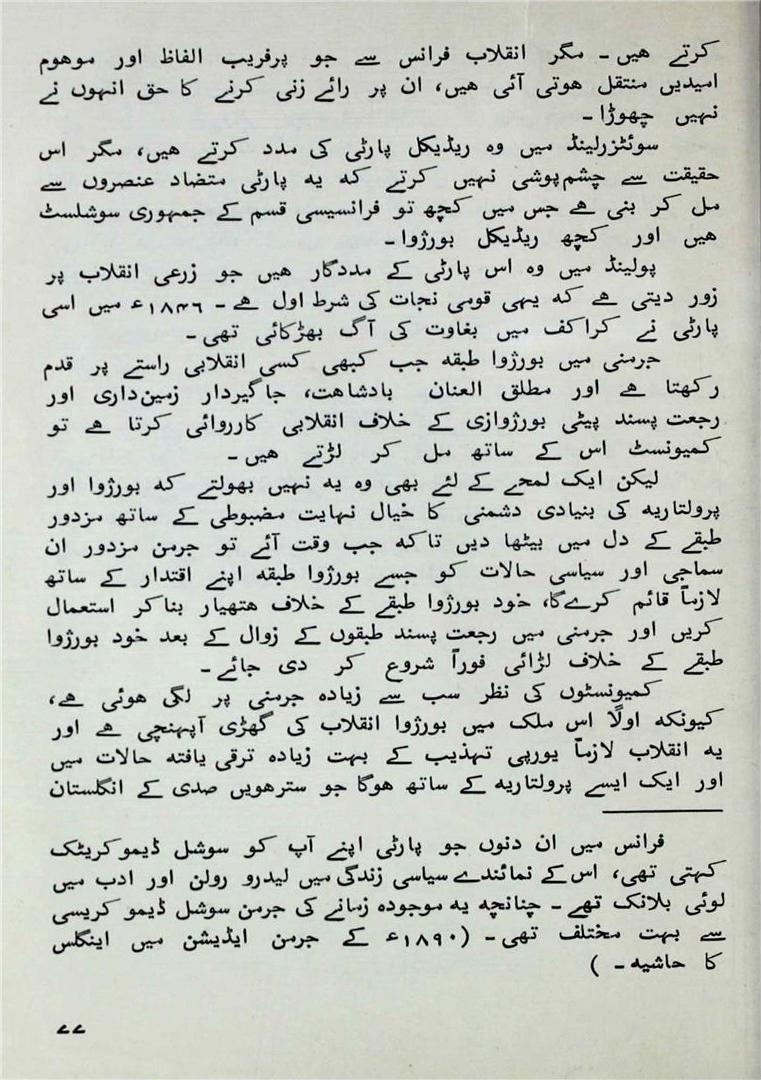 کرتے ہیں۔ مگر انقلاب فرانس سے جو پرفریب الفاظ اور موہوم
امیدیں منتقل ہوتی آئی ہیں، ان پر رائے زنی کرنے کا حق انہوں نے
نہیں چھوڑا۔
سوئٹزرلینڈ میں وہ ریڈیکل پارٹی کی مدد کرتے ہیں، مگر اس
حقیقت سے چشم پوشی نہیں کرتے کہ یہ پارٹی متضاد عنصروں سے
مل کر بنی ہے جس میں کچھ تو فرانسیسی قسم کے جمہوری سوشلسٹ
ہیں اور کچھ ریڈیکل بورژوا۔
پولینڈ میں وہ اس پارٹی کے مددگار ہیں جو زرعی انقلاب پر
زور دیتی ہے کہ یہی قومی نجات کی شرط اول ہے۔ ۱۸۴۶ء میں اسی
پارٹی نے کراکف میں بغاوت کی آگ بھڑکائی تھی۔
جرمنی میں بورژوا طبقہ جب کبھی کسی انقلابی راستے پر قدم
رکھتا ہے اور مطلق العنان بادشاہت، جاگیردار زمین‌داری اور
رجعت پسند پیٹی بورژوازی کے خلاف انقلابی کارروائی کرتا ہے تو
کمیونسٹ اس کے ساتھ مل کر لڑتے ہیں۔
لیکن ایک لمحے کے لئے بھی وہ یہ نہیں بھولتے کہ بورژوا اور
پرولتاریہ کی بنیادی دشمنی کا خیال نہایت مضبوطی کے ساتھ مزدور
طبقے کے دل میں بیٹھا دیں تاکہ جب وقت آئے تو جرمن مزدور ان
سماجی اور سیاسی حالات کو جسے بورژوا طبقہ اپنے اقتدار کے ساتھ
لازماً قائم کرےگا، خود بورژوا طبقے کے خلاف ہتھیار بناکر استعمال
کریں اور جرمنی میں رجعت پسند طبقوں کے زوال کے بعد خود بورژوا
طبقے کے خلاف لڑائی فوراً شروع کر دی جائے۔
کمیونسٹوں کی نظر سب سے زیادہ جرمنی پر لگی ہوئی ہے،
کیونکہ اولاً اس ملک میں بورژوا انقلاب کی گھڑی آپہنچی ہے اور
یہ انقلاب لازماً یورپی تہذیب کے بہت زیادہ ترقی یافتہ حالات میں
اور ایک ایسے پرولتاریہ کے ساتھ ہوگا جو سترھویں صدی کے انگلستان
فرانس میں ان دنوں جو پارٹی اپنے آپ کو سوشل ڈیموکریٹک
کہتی تھی، اس کے نمائندے سیاسی زندگی میں لیدرو رولن اور ادب میں
لوئی بلانک تھے۔ چنانچہ یہ موجودہ زمانے کی جرمن سوشل ڈیموکریسی
سے بہت مختلف تھی۔ (۱۸۹۰ء کے جرمن ایڈیشن میں اینگلس
کا حاشیہ۔)
۷۷